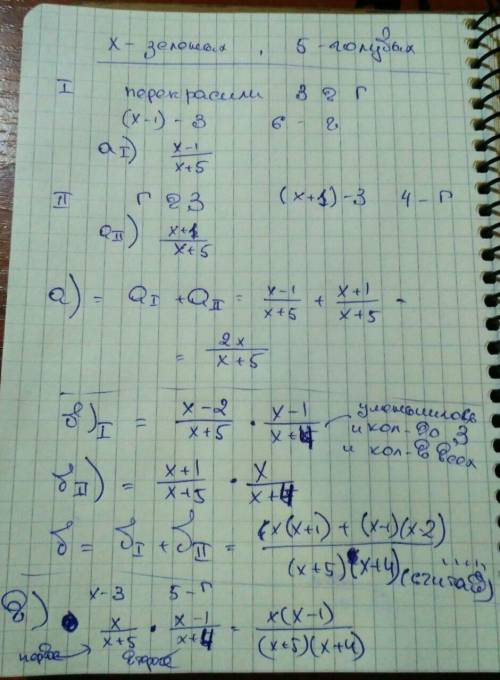 x - зеленых , 5 - голубых
I перекрасили З → Г
(x-1) - З 6 - Г
a I) \frac{x-1}{x+5}
II Г → З (x+1) - З 4 - Г
a II) \frac{x+1}{x+5}
a) = a_I + a_II = \frac{x-1}{x+5} + \frac{x+1}{x+5} =
= \frac{2x}{x+5}
б)_I = \frac{x-2}{x+5} · \frac{x-1}{x+4} уменьшилось
и кол-во З
и кол-во всех
б_II) = \frac{x+1}{x+5} · \frac{x}{x+4}
б = б_I + б_II = \frac{x(x+1) + (x-1)(x-2)}{(x+5)(x+4)} (считай)
x - З 5 - Г
в) \frac{x}{x+5} · \frac{x-1}{x+4} = \frac{x(x-1)}{(x+5)(x+4)}
первое второе